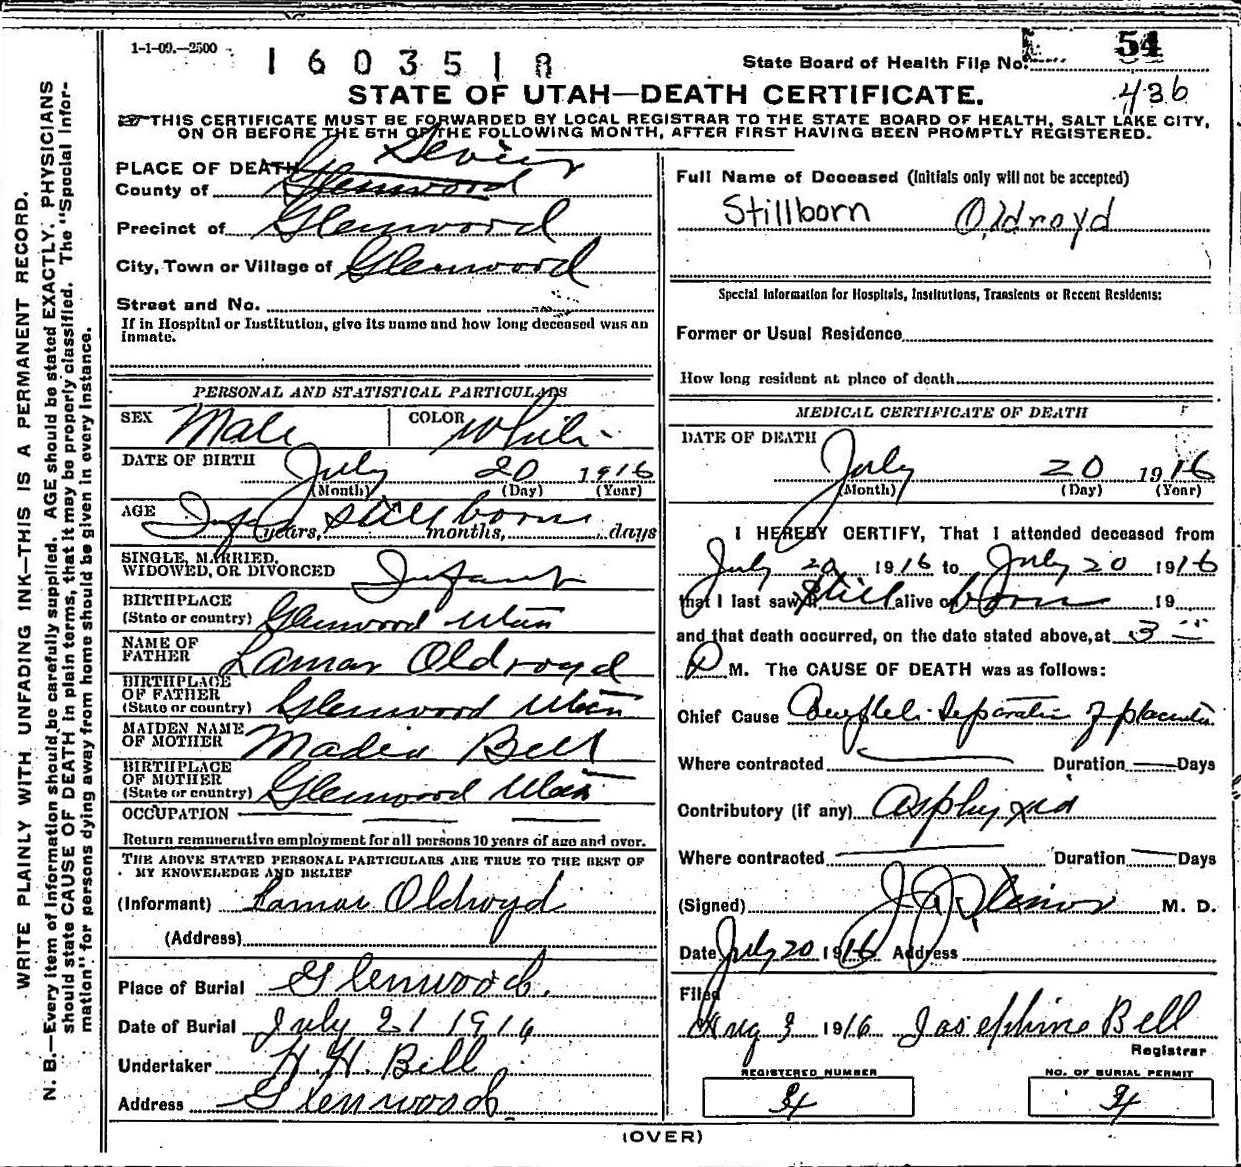 1-1-09.—2500
1603518
State Board of Health File No. 54
436
STATE OF UTAH—DEATH CERTIFICATE.
THIS CERTIFICATE MUST BE FORWARDED BY LOCAL REGISTRAR TO THE STATE BOARD OF HEALTH, SALT LAKE CITY,
ON OR BEFORE THE 5TH OF THE FOLLOWING MONTH, AFTER FIRST HAVING BEEN PROMPTLY REGISTERED.
WRITE PLAINLY WITH UNFADING INK—THIS IS A PERMANENT RECORD.
N. B.—Every item of information should be carefully supplied. AGE should be stated EXACTLY. PHYSICIANS
should state CAUSE OF DEATH in plain terms, that it may be properly classified. The "Special Infor-
mation" for persons dying away from home should be given in every instance.
PLACE OF DEATH Sevier
County of Glenwood
Precinct of Glenwood
City, Town or Village of Glenwood
Street and No.
If in Hospital or Institution, give its name and how long deceased was an
inmate.
PERSONAL AND STATISTICAL PARTICULARS
SEX Male COLOR White
DATE OF BIRTH July 20 1916
(Month) (Day) (Year)
AGE Infant Still born
years, months, days
SINGLE, MARRIED,
WIDOWED, OR DIVORCED Infant
BIRTHPLACE
(State or country) Glenwood Utah
NAME OF
FATHER Lamar Oldroyd
BIRTHPLACE
OF FATHER
(State or country) Glenwood Utah
MAIDEN NAME
OF MOTHER Bell
BIRTHPLACE
OF MOTHER
(State or country) Glenwood Utah
OCCUPATION
Return remunerative employment for all persons 10 years of age and over.
THE ABOVE STATED PERSONAL PARTICULARS ARE TRUE TO THE BEST OF
MY KNOWELEDGE AND BELIEF
(Informant) Lamar Oldroyd
(Address)
Place of Burial Glenwood.
Date of Burial July 21 1916
Undertaker H. H. Bell
Address Glenwood
Full Name of Deceased (Initials only will not be accepted)
Stillborn Oldroyd
Special Information for Hospitals, Institutions, Transients or Recent Residents:
Former or Usual Residence
How long resident at place of death
MEDICAL CERTIFICATE OF DEATH
DATE OF DEATH
July 20 1916
(Month) (Day) (Year)
I HEREBY CERTIFY, That I attended deceased from
July 20 1916 to July 20 1916
that I last saw Still alive on born 19
and that death occurred, on the date stated above, at 3
P M. The CAUSE OF DEATH was as follows:
Chief Cause Complete Separation of placenta
Where contracted Duration Days
Contributory (if any) Asphyxia
Where contracted Duration Days
(Signed) M. D.
Date July 20 1916 Address
Filed
Aug 3 1916 Josephine Bell
Registrar
REGISTERED NUMBER
NO. OF BURIAL PERMIT
(OVER)